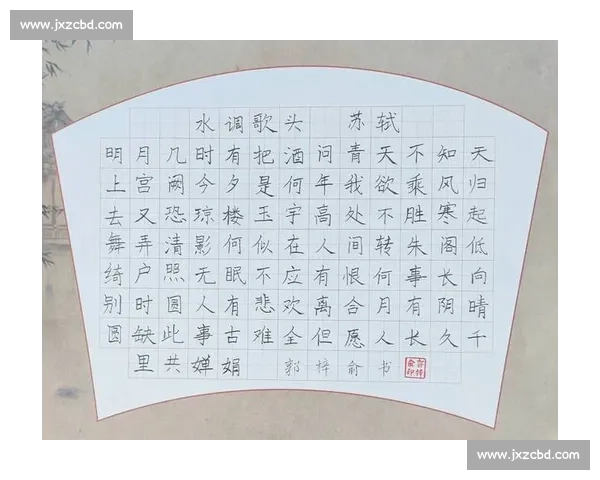 www.jxzcbd.com
水调歌头 苏轼
明月几时有把酒问青天不知天
上宫阙今夕是何年我欲乘风归
去又恐琼楼玉宇高处不胜寒起
舞弄清影何似在人间转朱阁低
绮户照无眠不应有恨何事长向
别时圆人有悲欢离合月有阴晴
圆缺此事古难全但愿人长久千
里共婵娟 郭梓俞书
www.jxzcbd.com